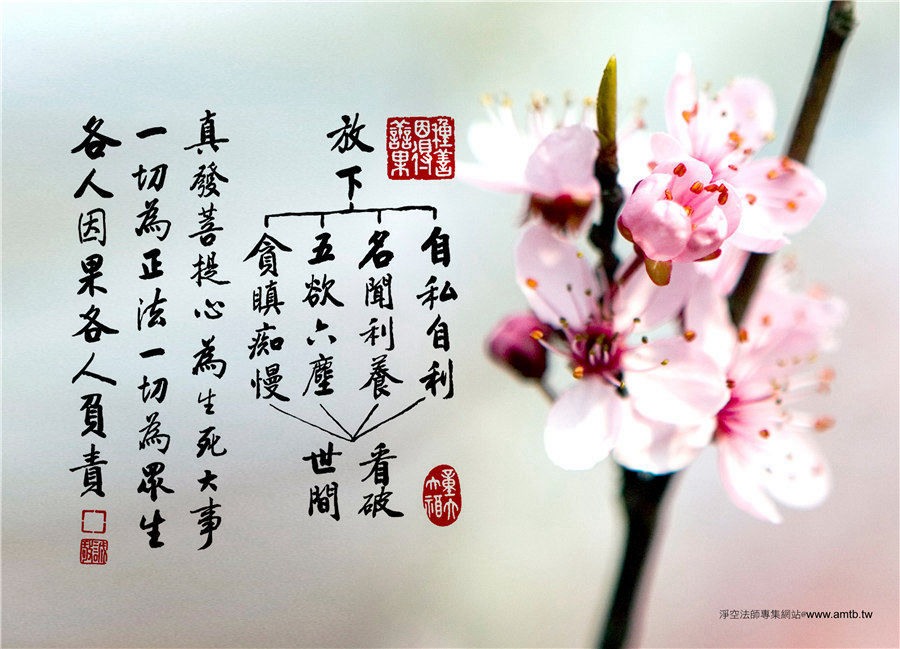 種善因得善果
放下
自私自利
名聞利養
五欲六塵
貪瞋痴慢
看破
世間
真發菩提心為生死大事
一切為正法一切為眾生
各人因果各人負責
淨空法師專集網站●www.amtb.tw